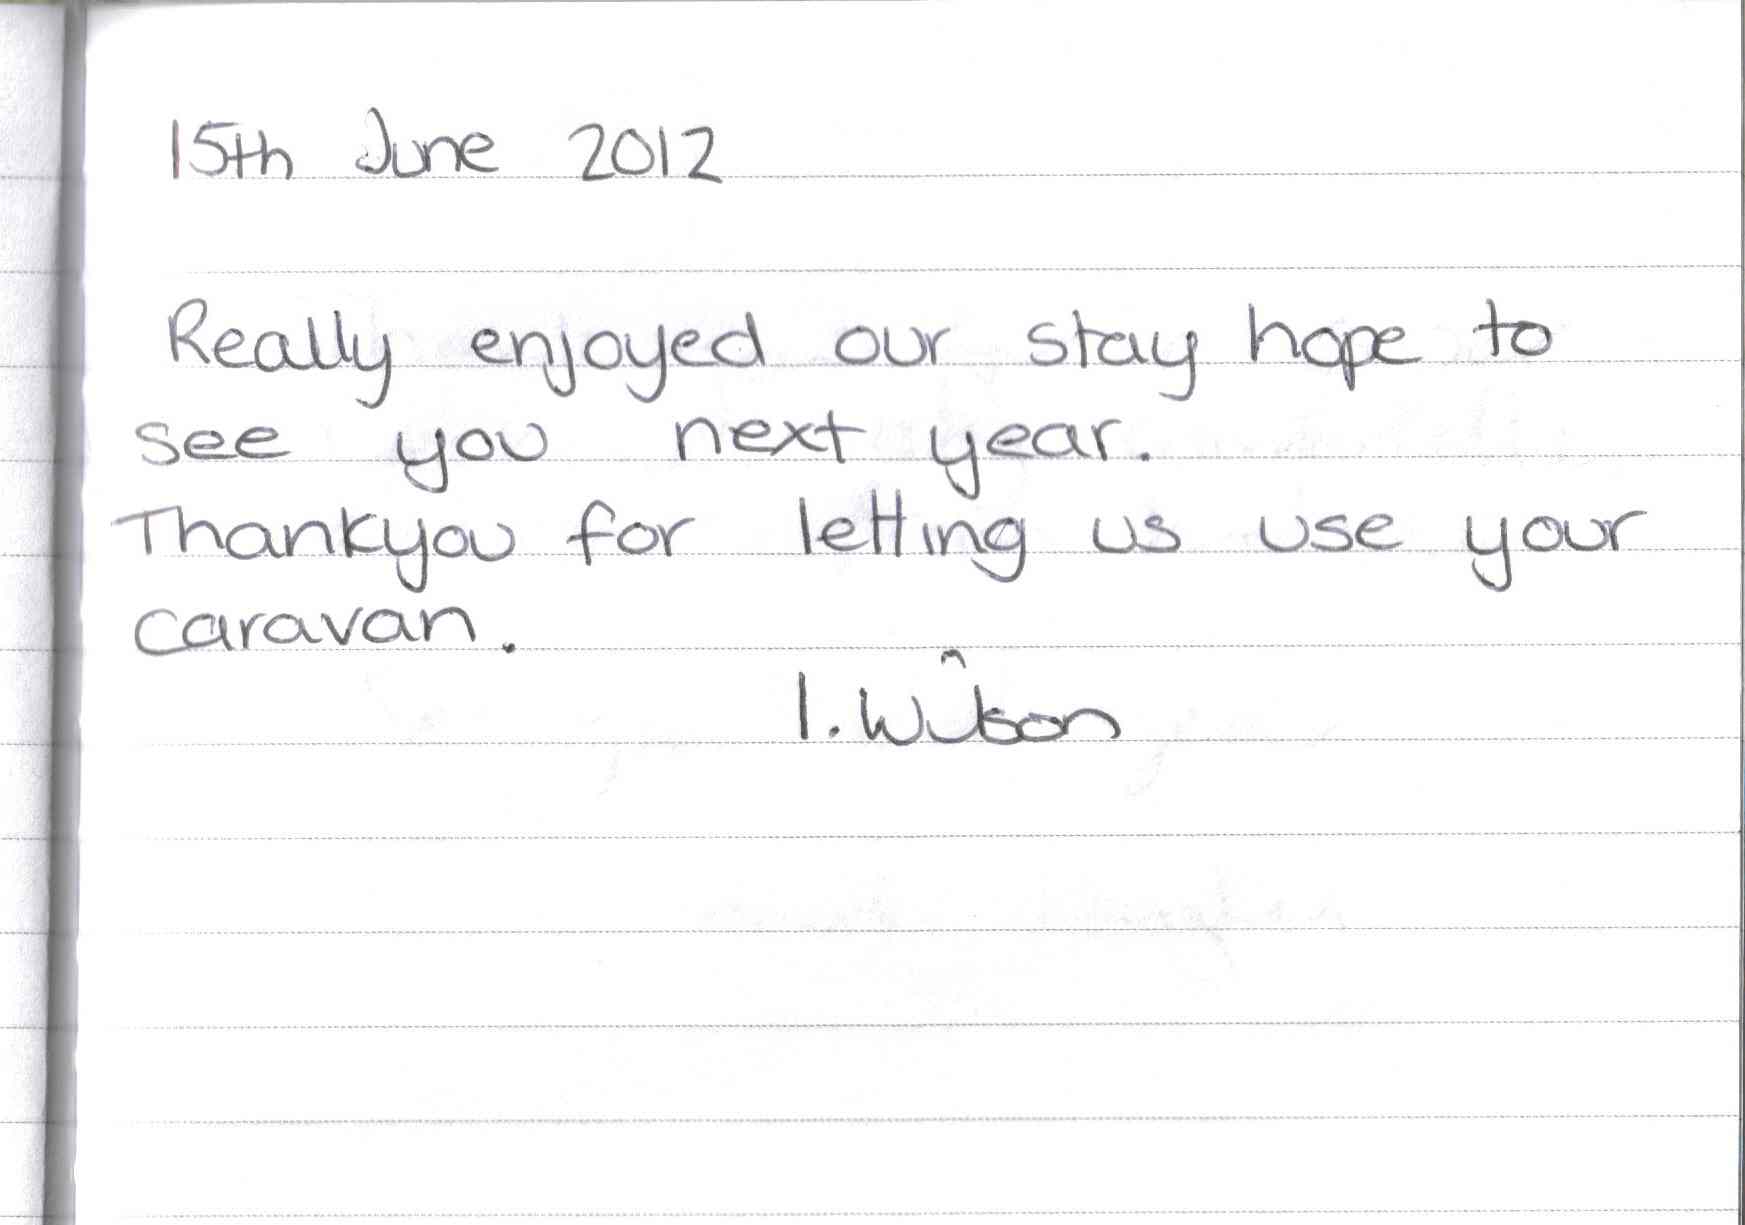 15th June 2012
Really enjoyed our stay hope to
see you next year.
Thankyou for letting us use your
caravan.
I. Wilson